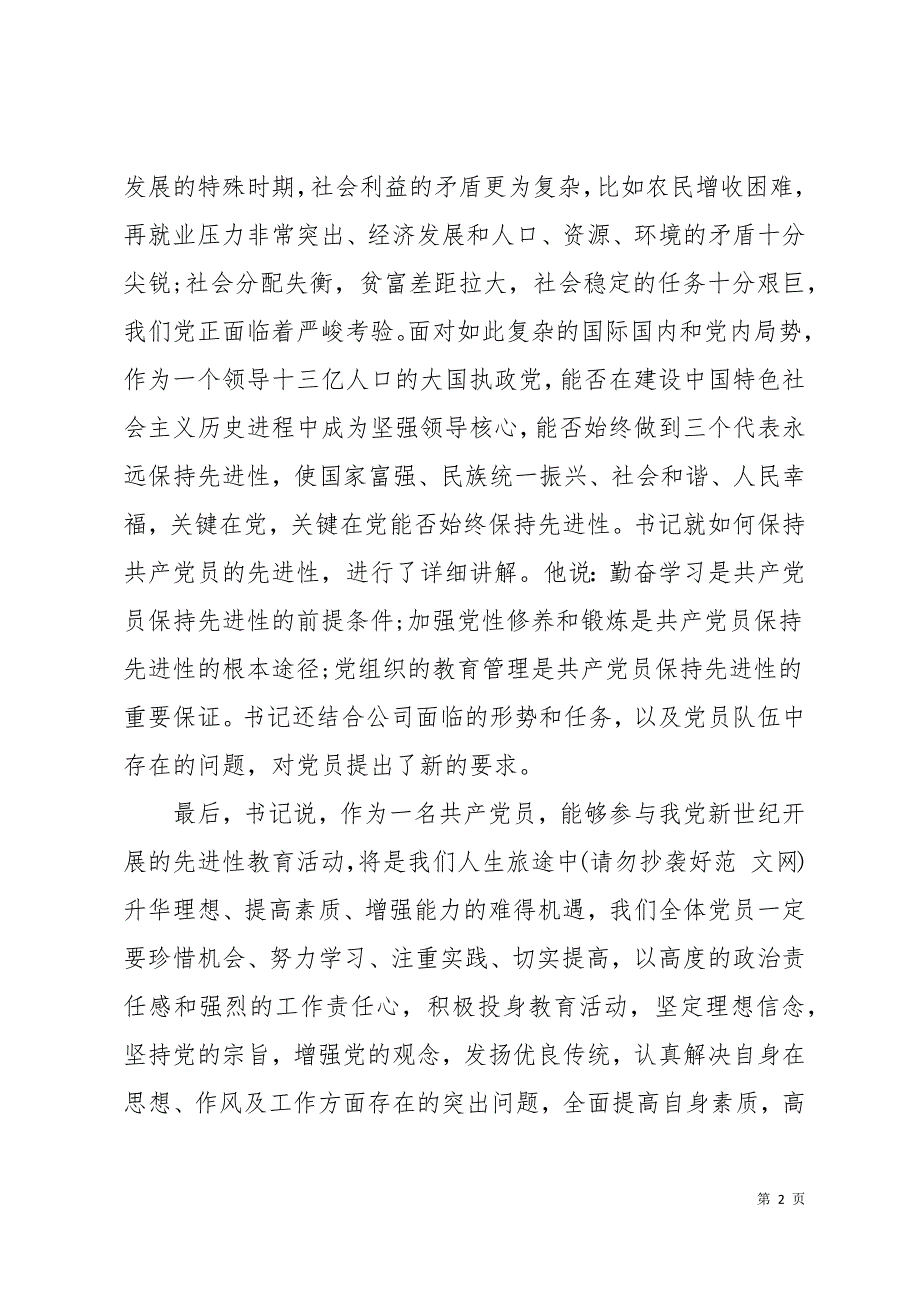 发展的特殊时期，社会利益的矛盾更为复杂，比如农民增收困难，
再就业压力非常突出、经济发展和人口、资源、环境的矛盾十分
尖锐;社会分配失衡，贫富差距拉大，社会稳定的任务十分艰巨，
我们党正面临着严峻考验。面对如此复杂的国际国内和党内局势，
作为一个领导十三亿人口的大国执政党，能否在建设中国特色社
会主义历史进程中成为坚强领导核心，能否始终做到三个代表永
远保持先进性，使国家富强、民族统一振兴、社会和谐、人民幸
福，关键在党，关键在党能否始终保持先进性。书记就如何保持
共产党员的先进性，进行了详细讲解。他说：勤奋学习是共产党
员保持先进性的前提条件;加强党性修养和锻炼是共产党员保持
先进性的根本途径;党组织的教育管理是共产党员保持先进性的
重要保证。书记还结合公司面临的形势和任务，以及党员队伍中
存在的问题，对党员提出了新的要求。
最后，书记说，作为一名共产党员，能够参与我党新世纪开
展的先进性教育活动，将是我们人生旅途中(请勿抄袭好范 文网)
升华理想、提高素质、增强能力的难得机遇，我们全体党员一定
要珍惜机会、努力学习、注重实践、切实提高，以高度的政治责
任感和强烈的工作责任心，积极投身教育活动，坚定理想信念，
坚持党的宗旨，增强党的观念，发扬优良传统，认真解决自身在
思想、作风及工作方面存在的突出问题，全面提高自身素质，高
第 2 页